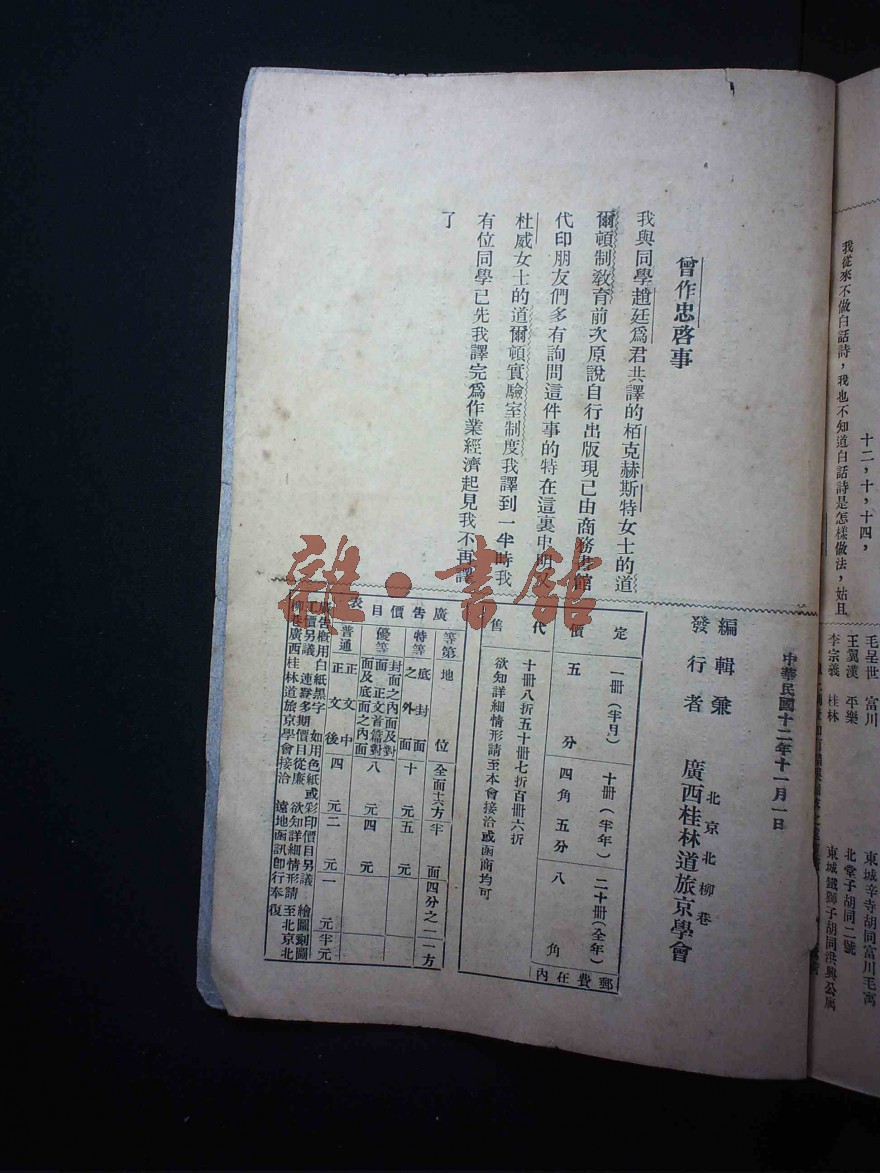 我從來不做白話詩，我也不知道白話詩是怎樣做法，姑且
十二，十，十四，
毛呈世　富川　東城辛寺胡同富川毛寓
王翼漢　平樂　北堂子胡同二號
李宗義　桂林　東城鐵獅子胡同洪興公寓
曾作忠啓事
我與同學趙廷爲君共譯的栢克赫斯特女士的道
爾頓制敎育前次原說自行出版現已由商務書館
代印朋友們多有詢問這件事的特在這裏申明又
杜威女士的道爾頓實驗室制度我譯到一半時我
有位同學已先我譯完爲作業經濟起見我不再譯
了
中華民國十二年十一月一日
編輯兼
發行者
北京北柳巷
廣西桂林道旅京學會
定　一冊（半月）　十冊（半年）　二十冊（全年）　郵費在內
價　五分　四角五分　八角
代售　十冊八折五十冊七折百冊六折
欲知詳細情形請至本會接洽或函商均可
廣告價目表
等第　地位　全面十六方　半面　四分之一　一方
特等　底封面之外面　十元　五元
優等　封面之內面及對面　正文首篇對面及底面之內面　八元　四元
普通　正文中正文後　四元　二元　一元　半元
廣告概用白紙黑字　如用色紙或彩印價目另議　繪圖剜圖
工價另議　連登多期價目從廉　欲知詳細情形請至北京北
柳巷廣西桂林道旅京學會接洽　遠地函訊卽行奉復
雜·書館